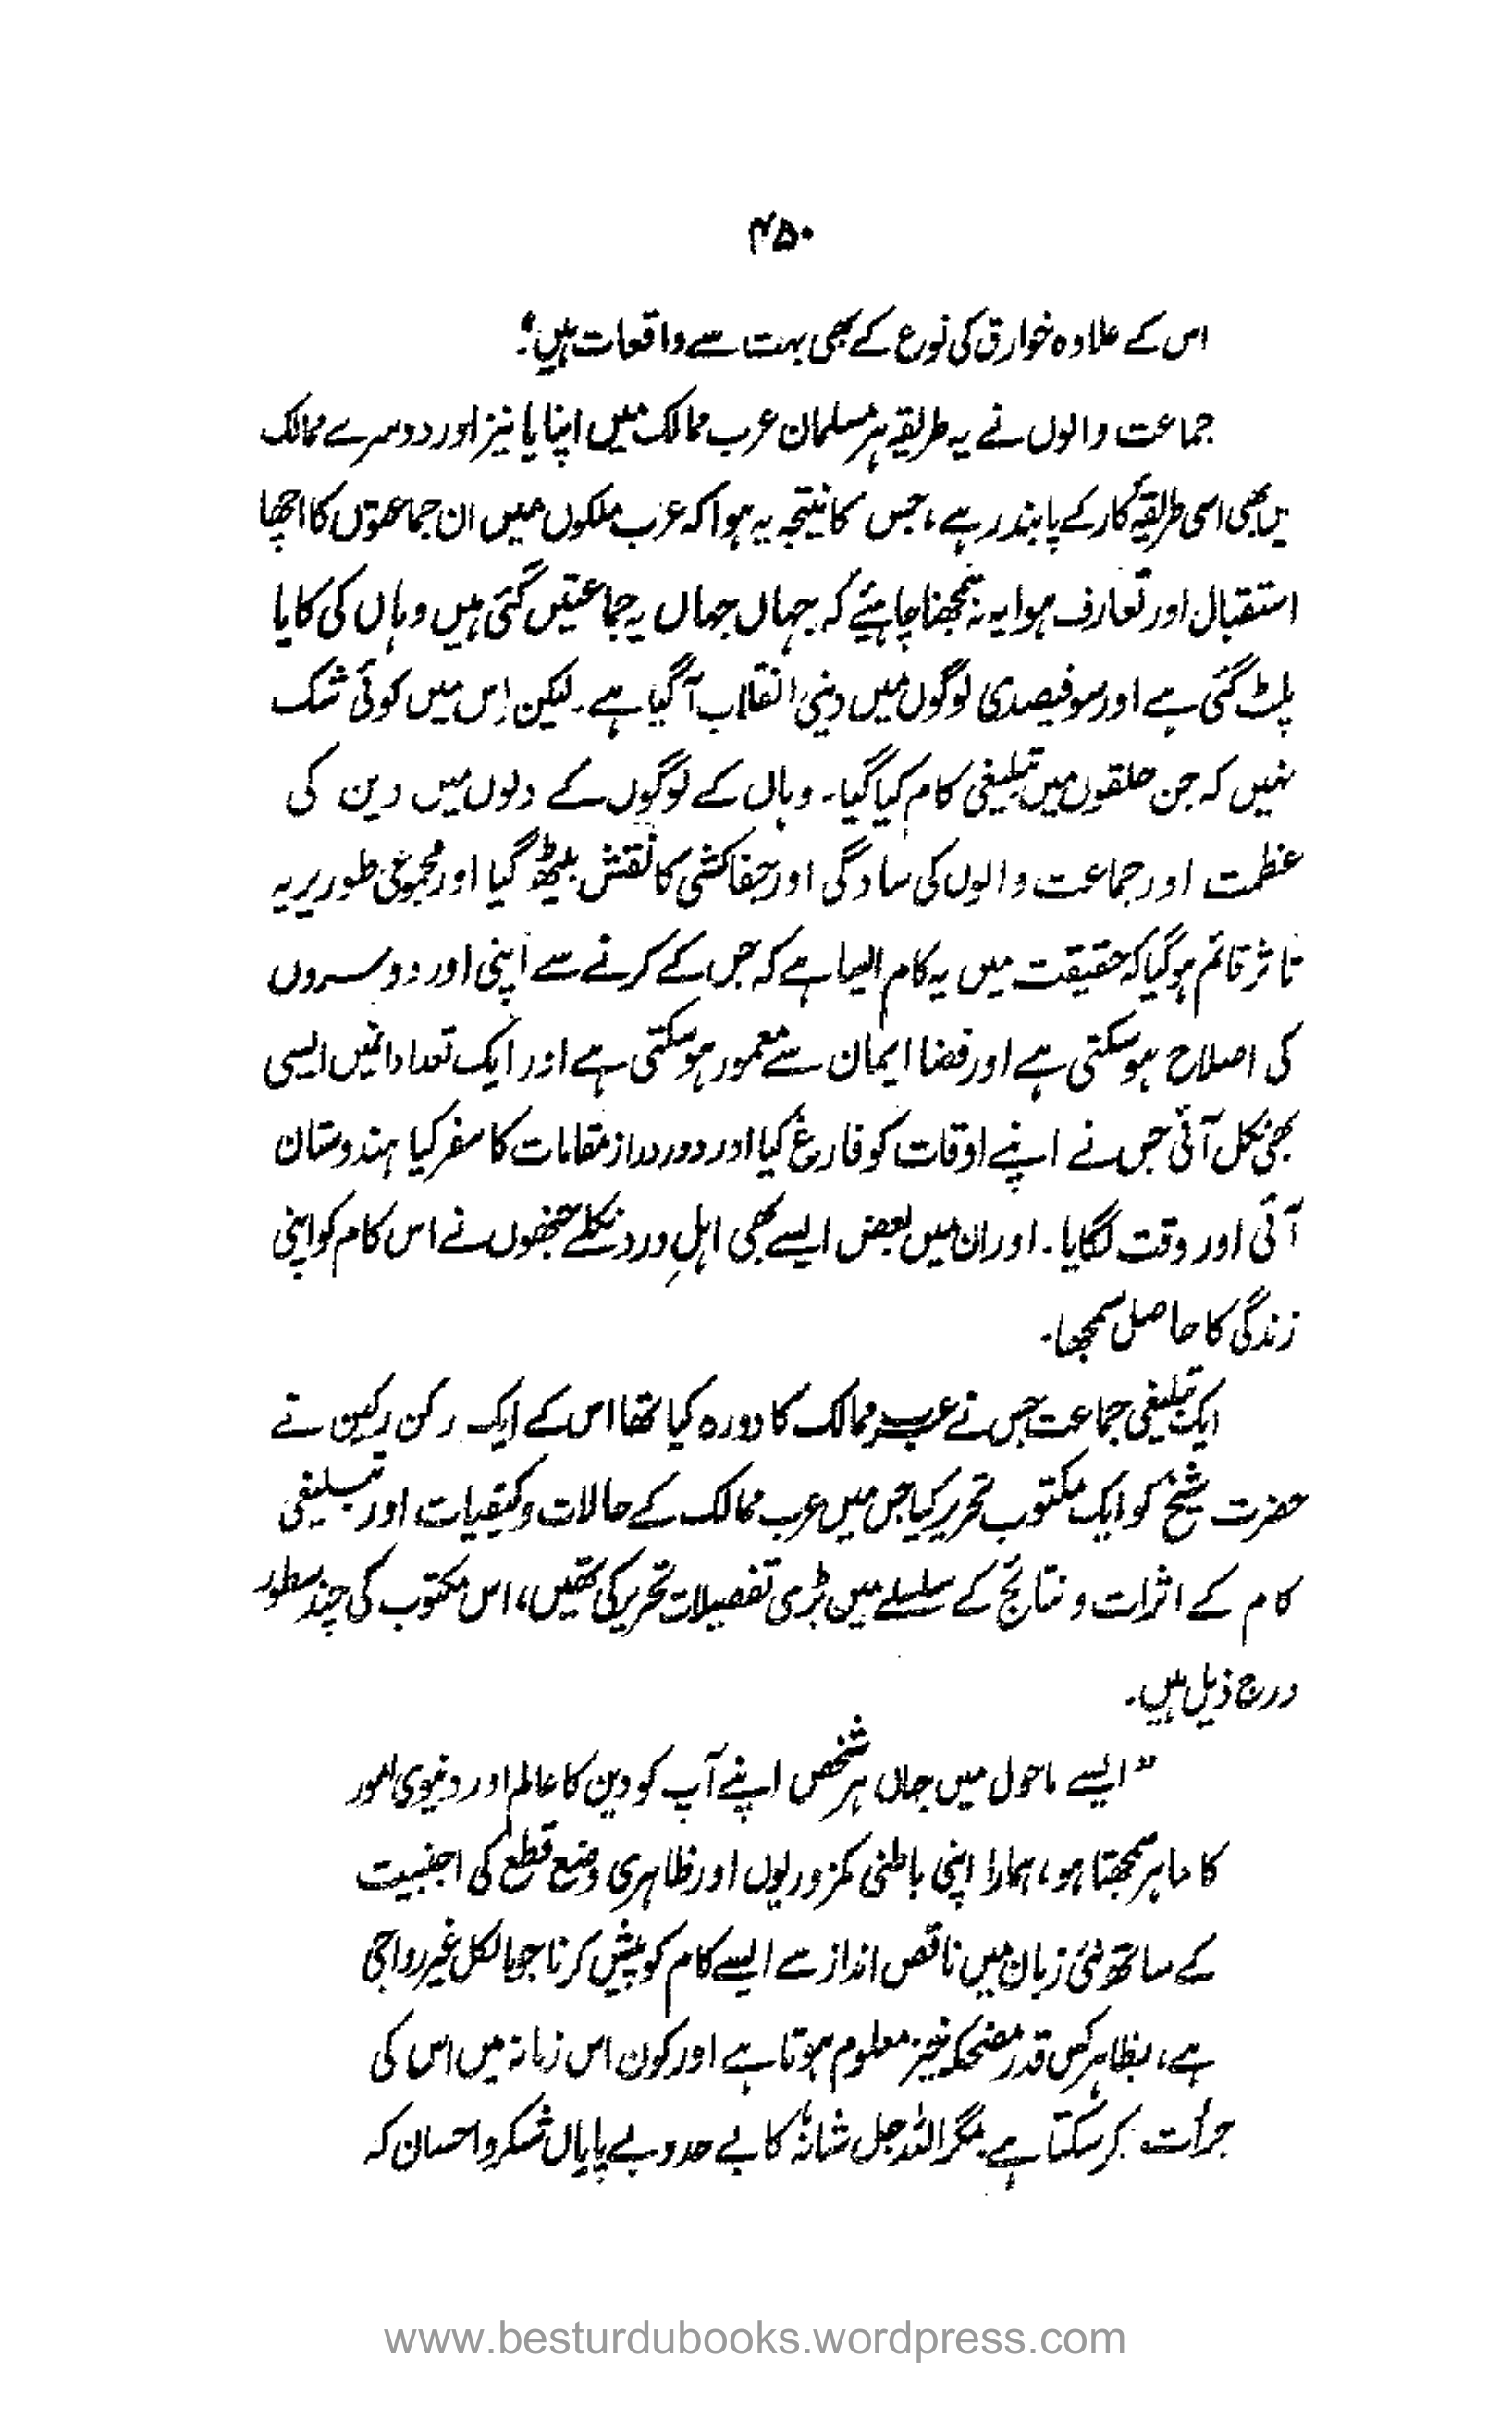 ۴۵۰
اس کے علاوہ خوارق کی نوع کے بھی بہت سے واقعات ہیں"
جماعت والوں نے یہ طریقہ ہر مسلمان عرب ممالک میں اپنایا نیز اور دوسرے ممالک
میں بھی اسی طریقۂ کار کے پابند رہے، جس کا نیتجہ یہ ہوا کہ عرب ملکوں میں ان جماعتوں کا اچھا
استقبال اور تعارف ہوا یہ نہ سمجھنا چاہیئے کہ جہاں جہاں یہ جماعتیں گئی ہیں وہاں کی کایا
پلٹ گئی ہے اور سو فیصدی لوگوں میں دینی انقلاب آگیا ہے۔ لیکن اِس میں کوئی شک
نہیں کہ جن حلقوں میں تبلیغی کام کیا گیا۔ وہاں کے لوگوں کے دلوں میں دین کی
عظمت اور جماعت والوں کی سادگی اور جفاکشی کا نقش بیٹھ گیا اور مجموعی طور پر یہ
تاثر قائم ہوگیا کہ حقیقت میں یہ کام ایسا ہے کہ جس کے کرنے سے اپنی اور دوسروں
کی اصلاح ہوسکتی ہے اور فضا ایمان سے معمور ہوسکتی ہے اور ایک تعداد انمیں ایسی
بھی نکل آئی جس نے اپنے اوقات کو فارغ کیا اور دور دراز مقامات کا سفر کیا ہندوستان
آئی اور وقت لگایا۔ اور ان میں بعض ایسے بھی اہلِ درد نکلے جنھوں نے اس کام کو اپنی
زندگی کا حاصل سمجھا۔
ایک تبلیغی جماعت جس نے عرب ممالک کا دورہ کیا تھا اس کے ایک رکن رکین نے
حضرت شیخ کو ایک مکتوب تحریر کیا جس میں عرب ممالک کے حالات و کیفیات اور تبلیغی
کام کے اثرات و نتائج کے سلسلے میں بڑی تفصیلات تحریر کی تھیں، اس مکتوب کی چند سطور
درج ذیل ہیں۔
"ایسے ماحول میں جہاں ہر شخص اپنے آپ کو دین کا عالم اور دنیوی امور
کا ماہر سمجھتا ہو، ہمارا اپنی باطنی کمزوریوں اور ظاہری وضع قطع کی اجنبیت
کے ساتھ نئی زبان میں ناقص انداز سے ایسے کام کو پیش کرنا جو بالکل غیر رواجی
ہے، بظاہر کس قدر مضحکہ خیز معلوم ہوتا ہے اور کون اس زمانہ میں اس کی
جرأت کرسکتا ہے مگر اللہ جل شانہٗ کا بے حد و بے پایاں شکر و احسان کہ
www.besturdubooks.wordpress.com